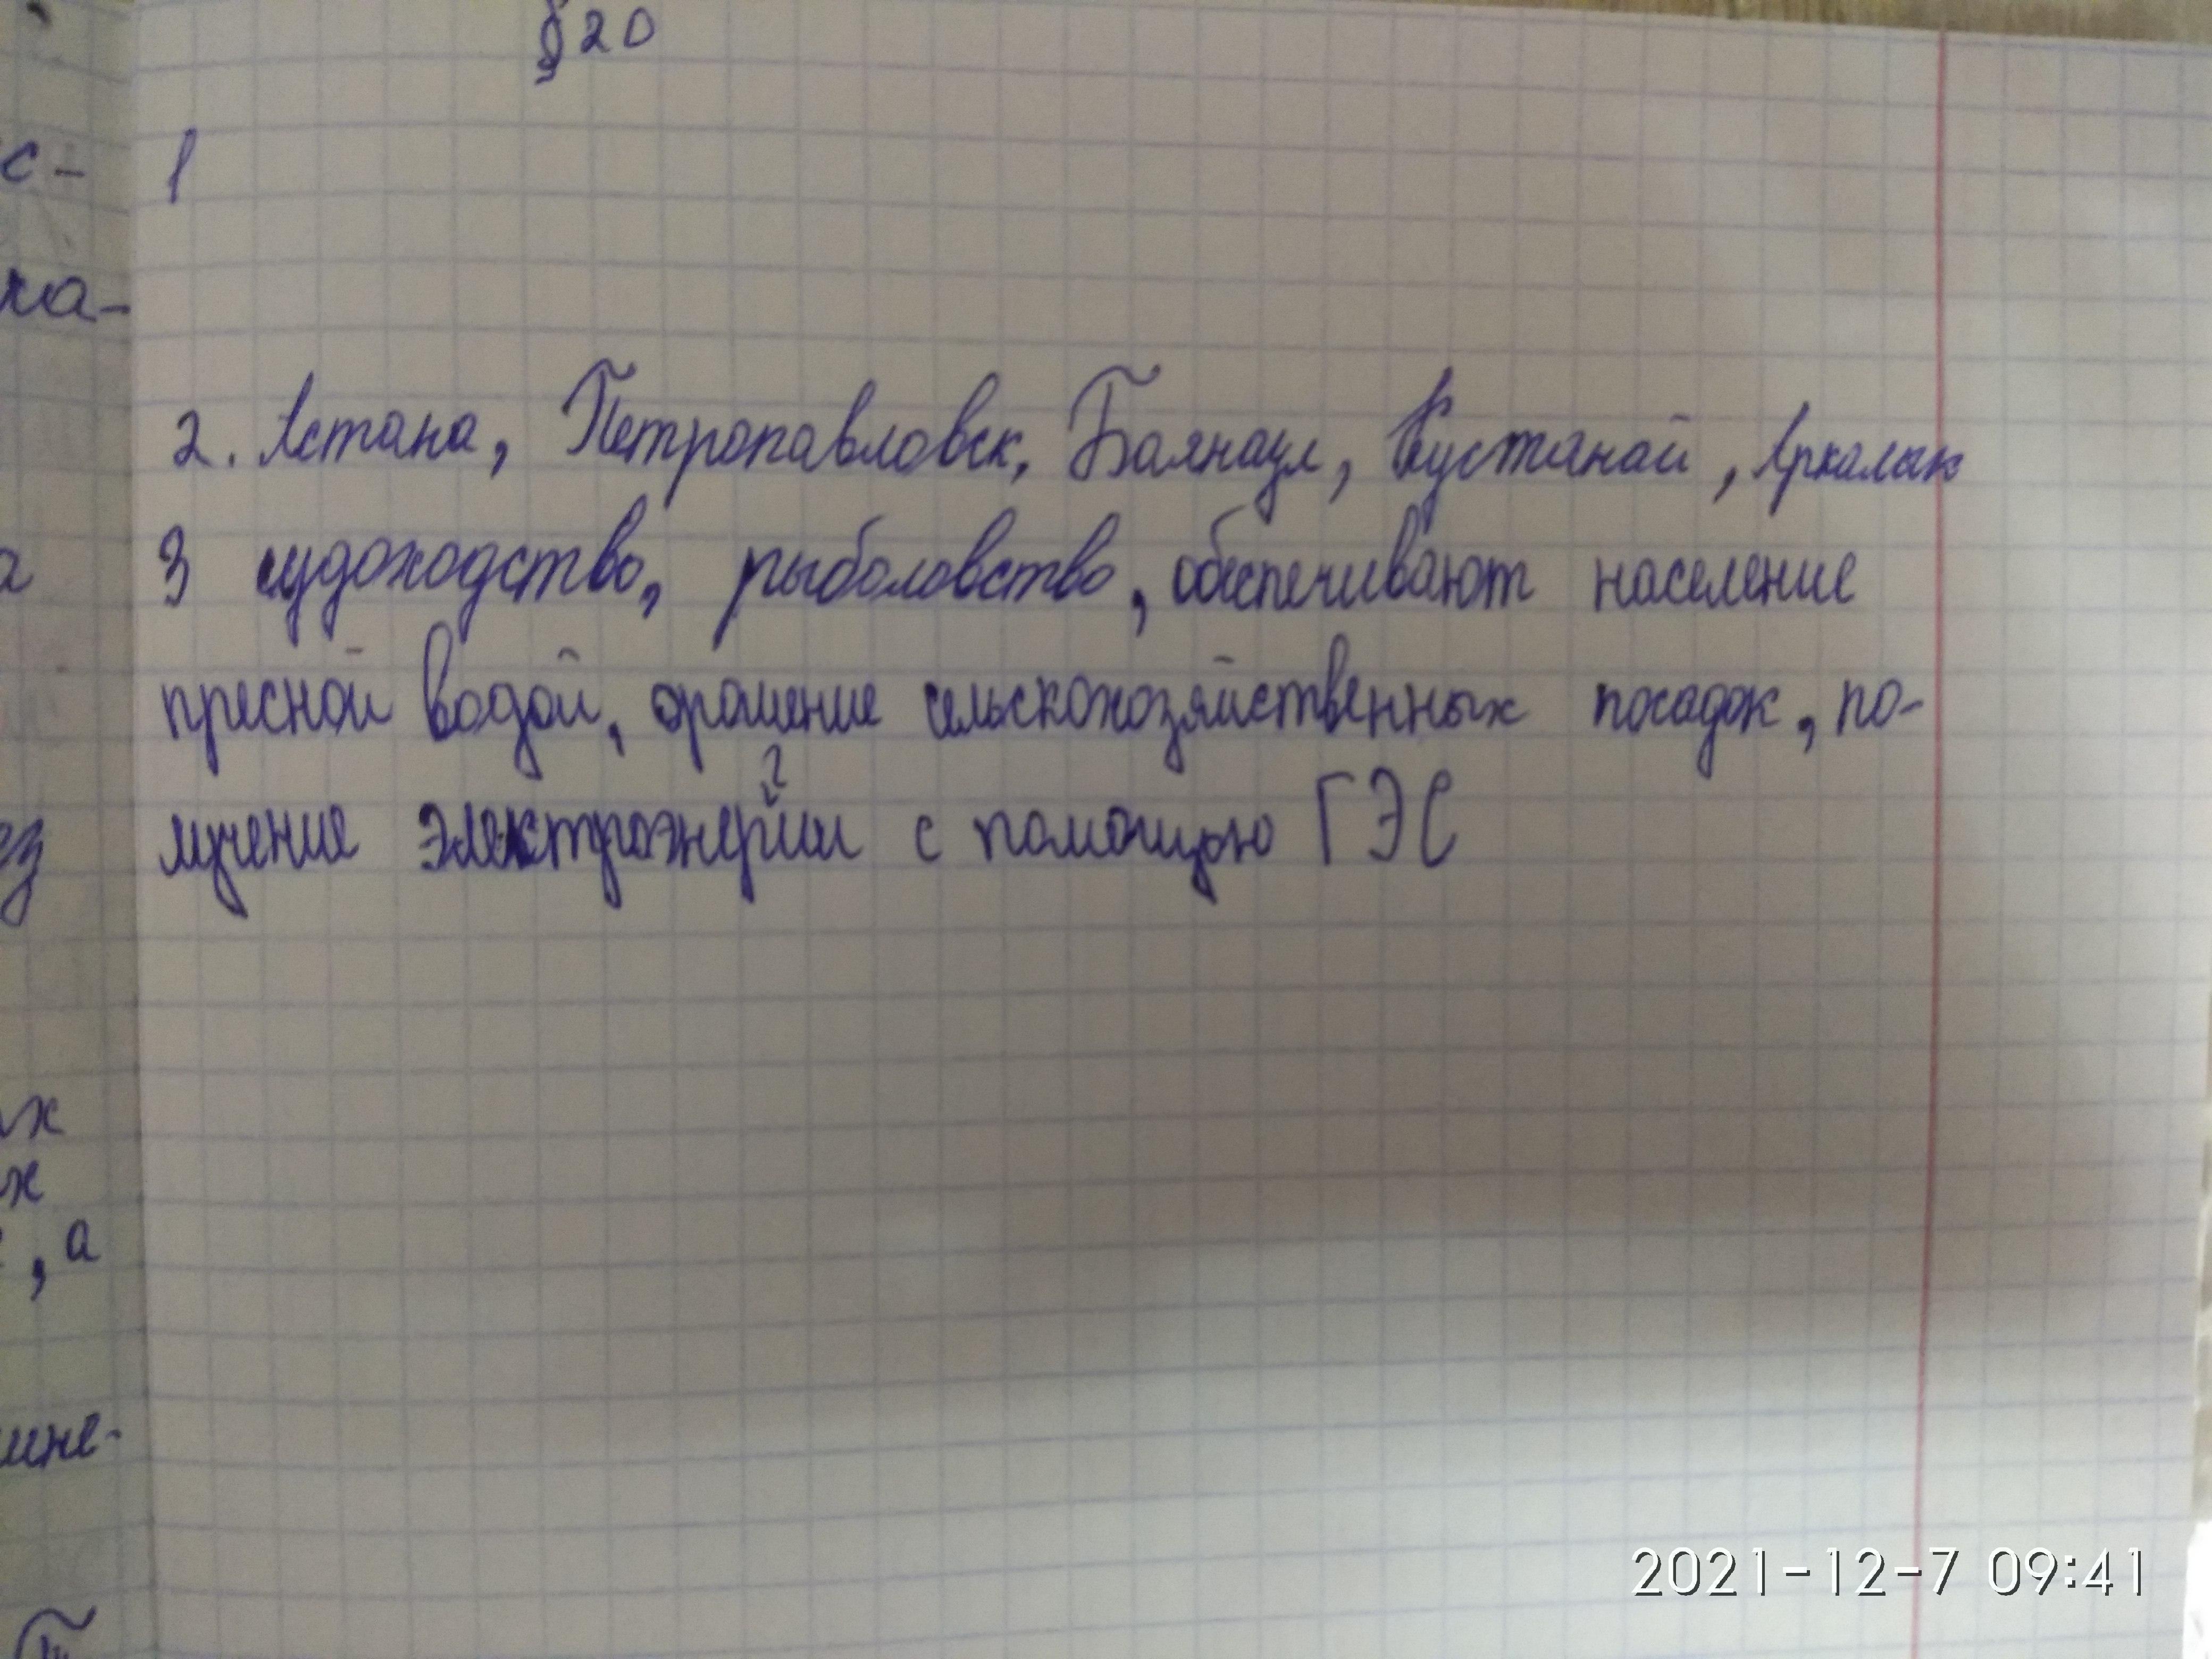 §20
с-
1
ка-
2. Астана, Петропавловск, Баянаул, Кустанай, Аркалык
3 судоходство, рыболовство, обеспечивают население
пресной водой, орошение сельскохозяйственных посадок, по-
лучение электроэнергии с помощью ГЭС
ез
х
х
, а
ине-
2021-12-7 09:41